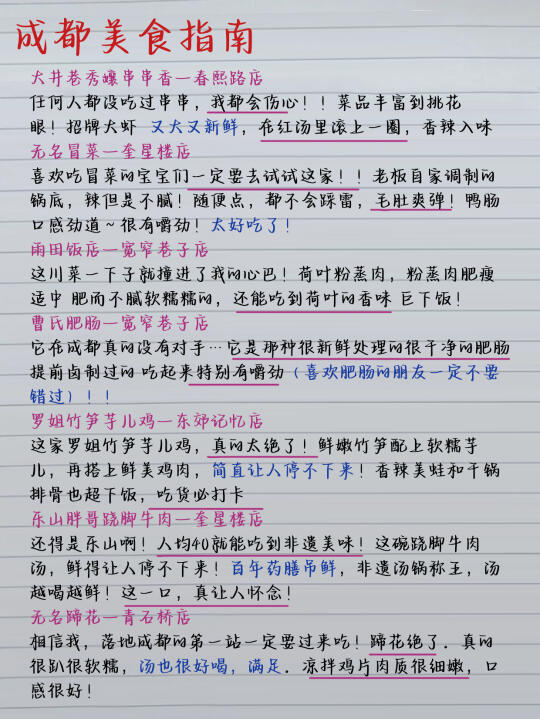 成都美食指南
大井巷秀嬢串串香—春熙路店
任何人都没吃过串串，我都会伤心！！菜品丰富到挑花
眼！招牌大虾 又大又新鲜，在红汤里滚上一圈，香辣入味
无名冒菜—奎星楼店
喜欢吃冒菜的宝宝们一定要去试试这家！！老板自家调制的
锅底，辣但是不腻！随便点，都不会踩雷，毛肚爽弹！鸭肠
口感劲道~很有嚼劲！太好吃了！
雨田饭店—宽窄巷子店
这川菜一下子就撞进了我的心巴！荷叶粉蒸肉，粉蒸肉肥瘦
适中 肥而不腻软糯糯的，还能吃到荷叶的香味 巨下饭！
曹氏肥肠—宽窄巷子店
它在成都真的没有对手…它是那种很新鲜处理的很干净的肥肠
提前卤制过的 吃起来特别有嚼劲（喜欢肥肠的朋友一定不要
错过）！！
罗姐竹笋芋儿鸡—东郊记忆店
这家罗姐竹笋芋儿鸡，真的太绝了！鲜嫩竹笋配上软糯芋
儿，再搭上鲜美鸡肉，简直让人停不下来！香辣美蛙和干锅
排骨也超下饭，吃货必打卡
乐山胖哥跷脚牛肉—奎星楼店
还得是乐山啊！人均40就能吃到非遗美味！这碗跷脚牛肉
汤，鲜得让人停不下来！百年药膳吊鲜，非遗汤锅称王，汤
越喝越鲜！这一口，真让人怀念！
无名蹄花—青石桥店
相信我，落地成都的第一站一定要过来吃！蹄花绝了．真的
很趴很软糯，汤也很好喝，满足．凉拌鸡片肉质很细嫩，口
感很好！